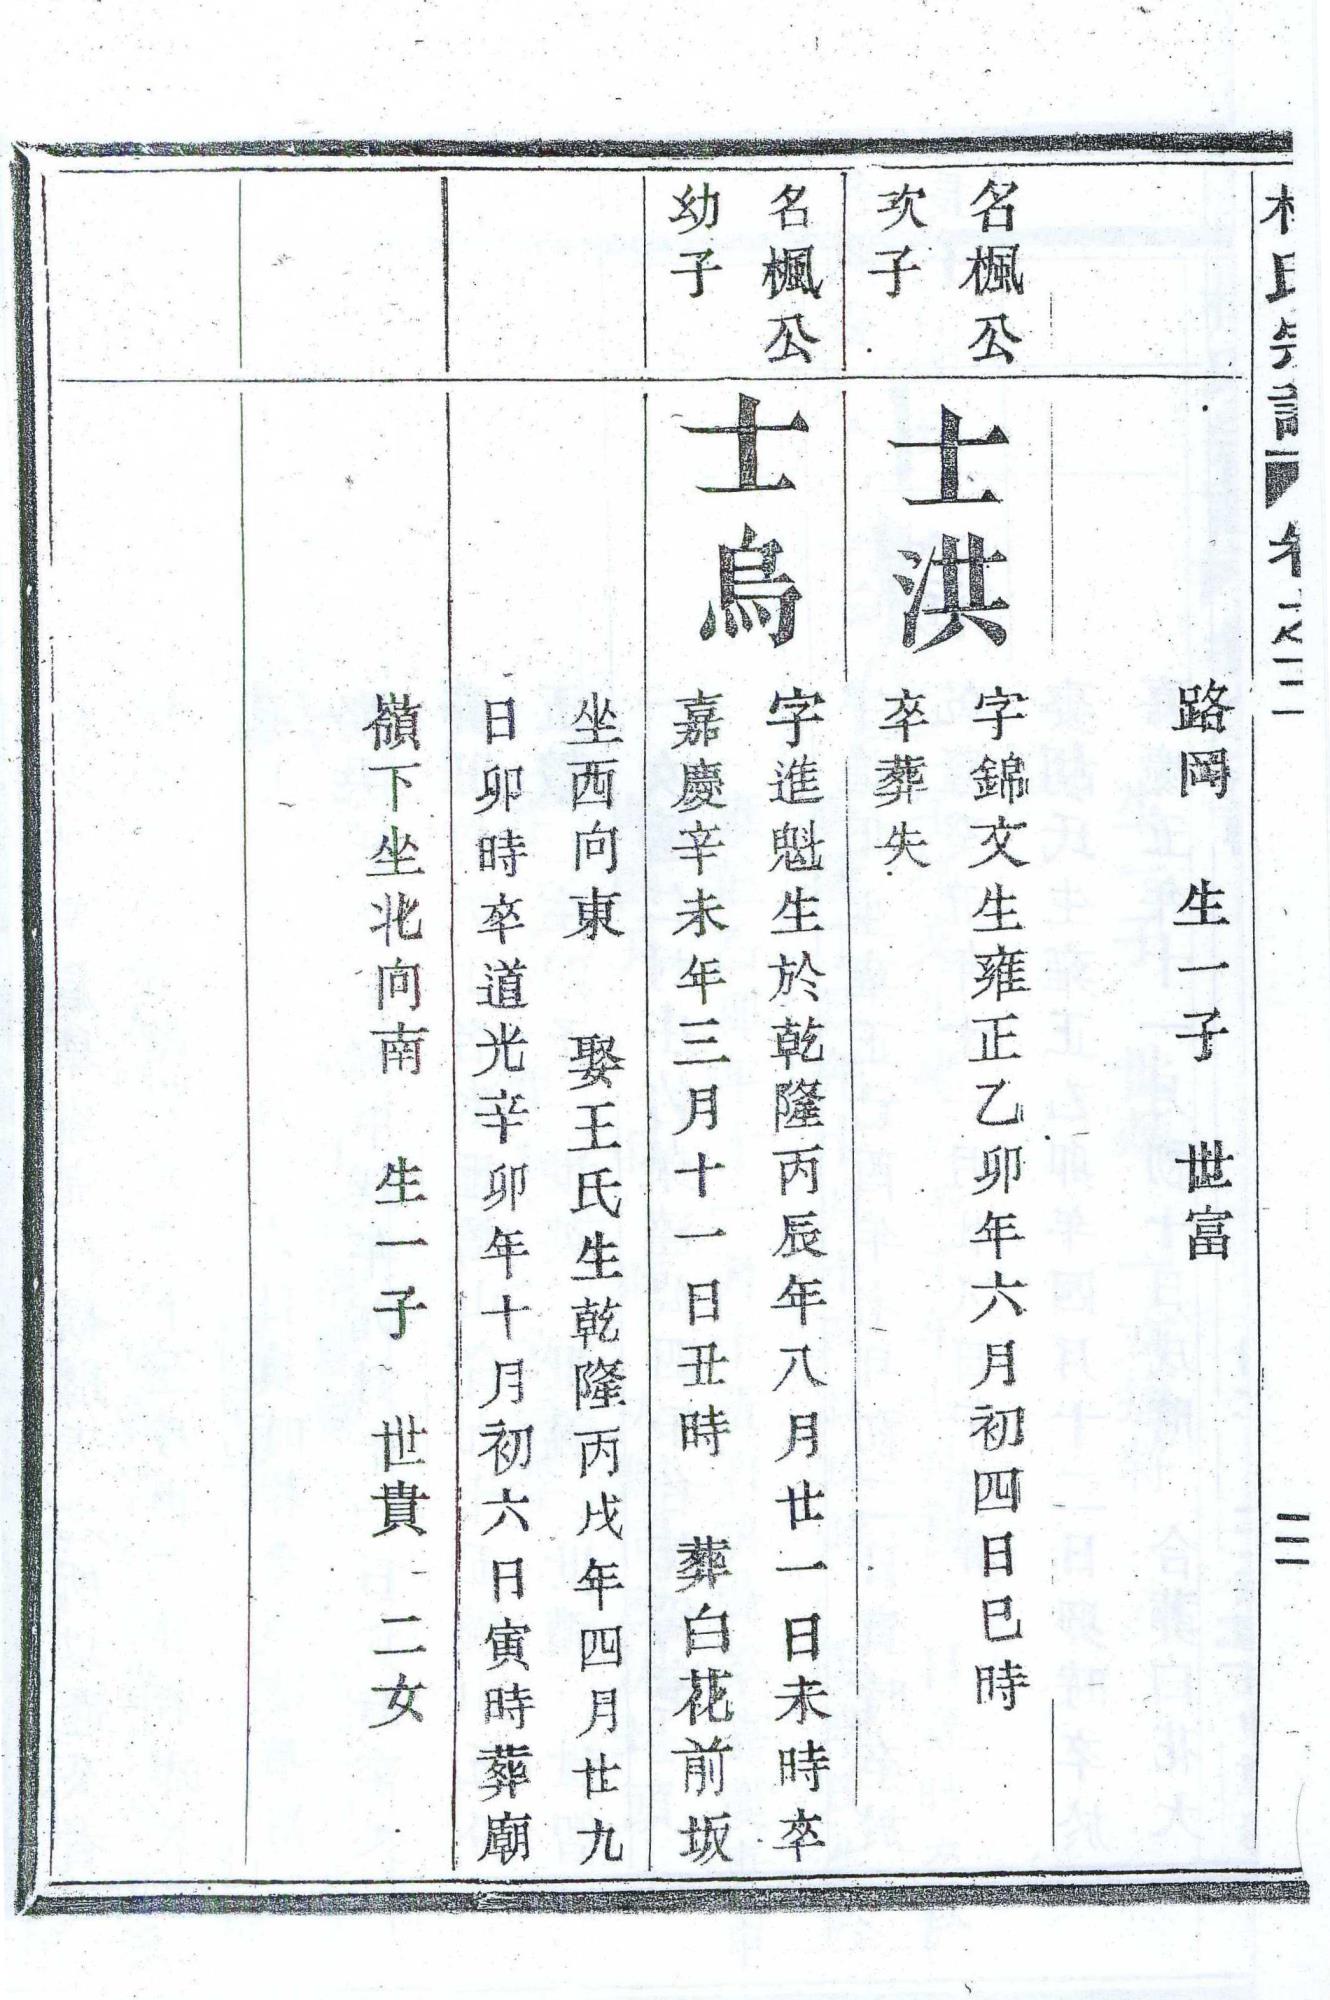 氏宗譜 卷之二
二
路岡 生一子 世富
名楓公
次子
士洪
字錦文生雍正乙卯年六月初四日巳時
卒葬失
名楓公
幼子
士鳥
字進魁生於乾隆丙辰年八月廿一日未時卒
嘉慶辛未年三月十一日丑時 葬白花前坂
坐西向東 娶王氏生乾隆丙戌年四月廿九
日卯時卒道光辛卯年十月初六日寅時葬廟
嶺下坐北向南 生一子 世貴 二女